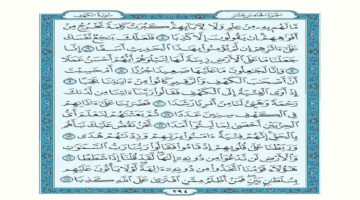 الجزء الخامس عشر سورة الكهف
مَّا لَهُم بِهِۦ مِنْ عِلْمٍ وَلَا لِءَابَآئِهِمْ كَبُرَتْ كَلِمَةً تَخْرُجُ مِنْ
أَفْوَٰهِهِمْ إِن يَقُولُونَ إِلَّا كَذِبًا ٥ فَلَعَلَّكَ بَٰخِعٌ نَّفْسَكَ
عَلَىٰٓ ءَاثَٰرِهِمْ إِن لَّمْ يُؤْمِنُوا۟ بِهَٰذَا ٱلْحَدِيثِ أَسَفًا ٦ إِنَّا
جَعَلْنَا مَا عَلَى ٱلْأَرْضِ زِينَةً لَّهَا لِنَبْلُوَهُمْ أَيُّهُمْ أَحْسَنُ عَمَلًا
٧ وَإِنَّا لَجَٰعِلُونَ مَا عَلَيْهَا صَعِيدًا جُرُزًا ٨ أَمْ حَسِبْتَ
أَنَّ أَصْحَٰبَ ٱلْكَهْفِ وَٱلرَّقِيمِ كَانُوا۟ مِنْ ءَايَٰتِنَا عَجَبًا ٩
إِذْ أَوَى ٱلْفِتْيَةُ إِلَى ٱلْكَهْفِ فَقَالُوا۟ رَبَّنَآ ءَاتِنَا مِن لَّدُنكَ
رَحْمَةً وَهَيِّئْ لَنَا مِنْ أَمْرِنَا رَشَدًا ١٠ فَضَرَبْنَا عَلَىٰٓ ءَاذَانِهِمْ
فِى ٱلْكَهْفِ سِنِينَ عَدَدًا ١١ ثُمَّ بَعَثْنَٰهُمْ لِنَعْلَمَ أَىُّ
ٱلْحِزْبَيْنِ أَحْصَىٰ لِمَا لَبِثُوٓا۟ أَمَدًا ١٢ نَّحْنُ نَقُصُّ عَلَيْكَ نَبَأَهُم
بِٱلْحَقِّ إِنَّهُمْ فِتْيَةٌ ءَامَنُوا۟ بِرَبِّهِمْ وَزِدْنَٰهُمْ هُدًى ١٣
وَرَبَطْنَا عَلَىٰ قُلُوبِهِمْ إِذْ قَامُوا۟ فَقَالُوا۟ رَبُّنَا رَبُّ ٱلسَّمَٰوَٰتِ
وَٱلْأَرْضِ لَن نَّدْعُوَا۟ مِن دُونِهِۦٓ إِلَٰهًا لَّقَدْ قُلْنَآ إِذًا شَطَطًا ١٤
هَٰٓؤُلَآءِ قَوْمُنَا ٱتَّخَذُوا۟ مِن دُونِهِۦٓ ءَالِهَةً لَّوْلَا يَأْتُونَ عَلَيْهِم
بِسُلْطَٰنٍۭ بَيِّنٍ فَمَنْ أَظْلَمُ مِمَّنِ ٱفْتَرَىٰ عَلَى ٱللَّهِ كَذِبًا ١٥
٢٩٤